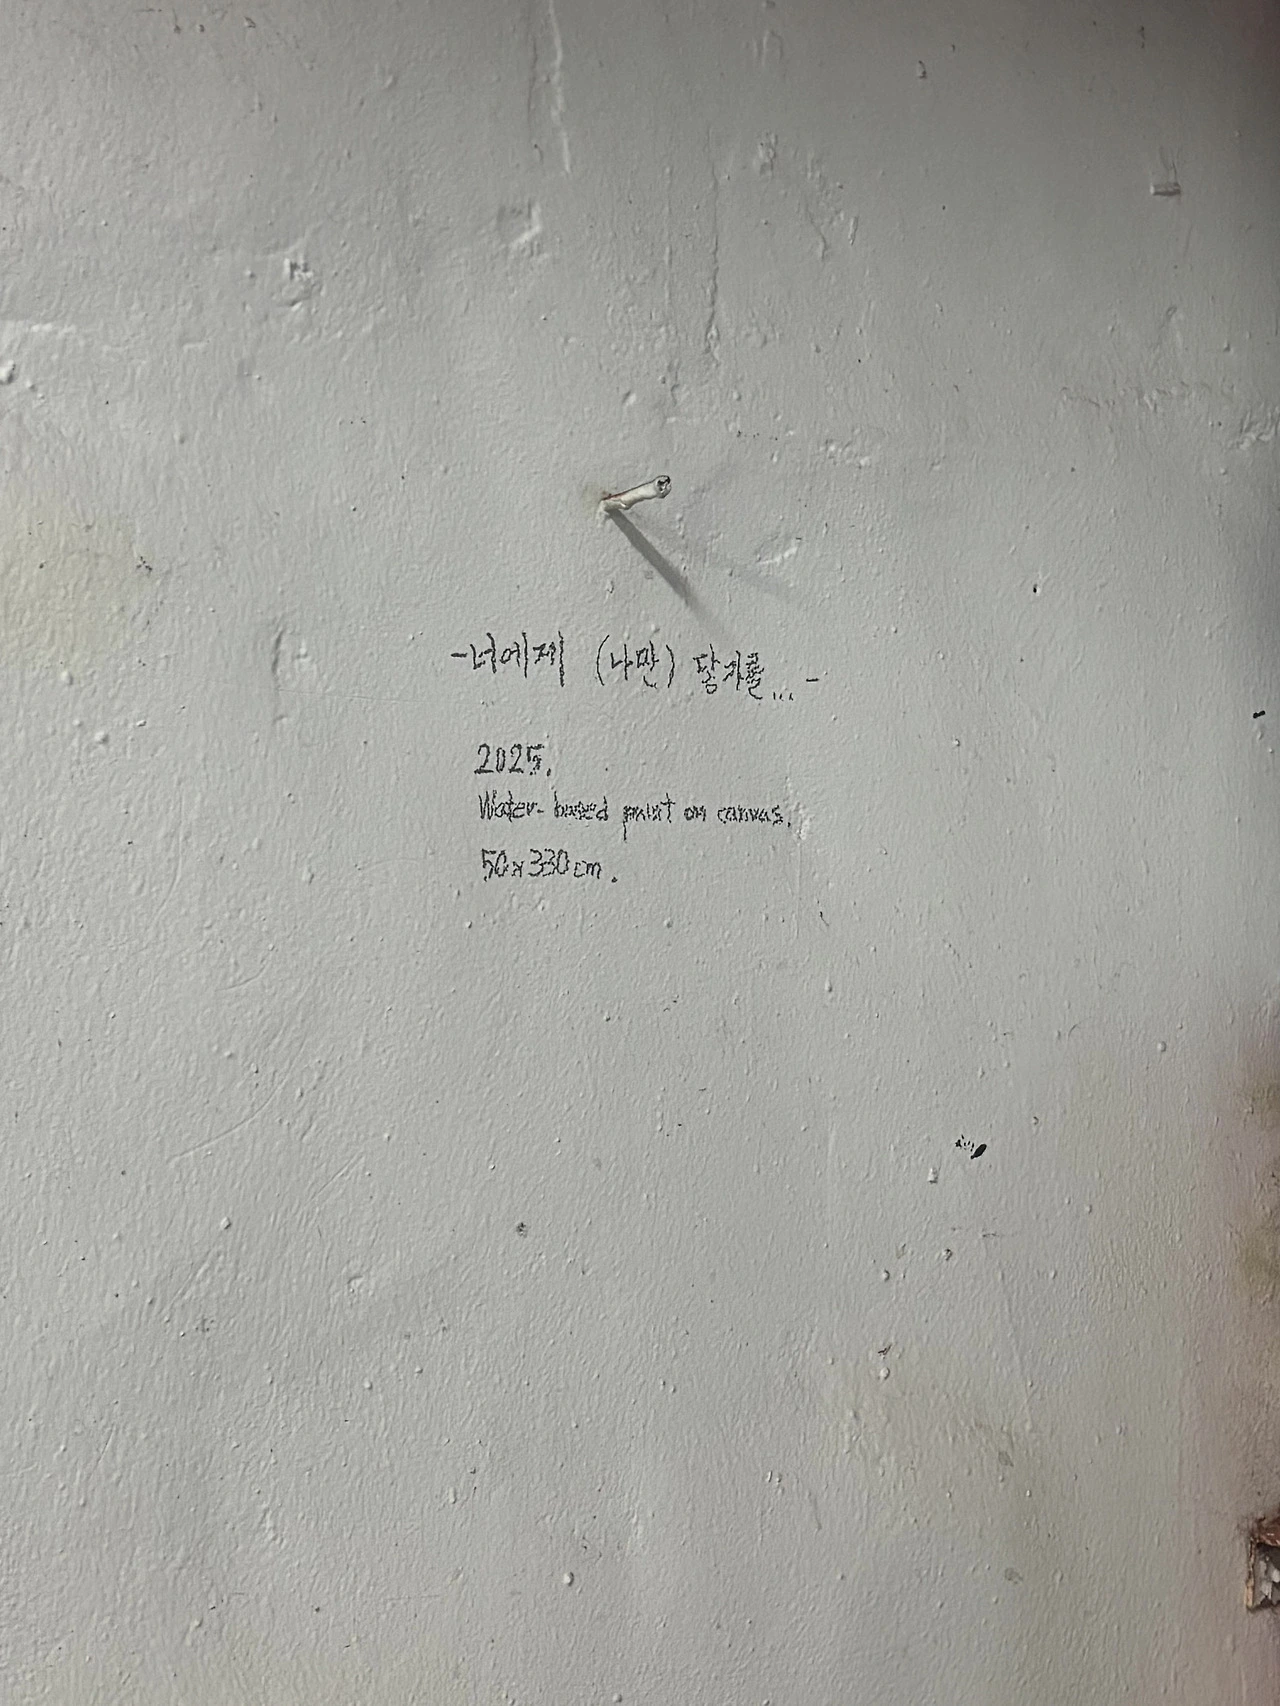 -너에게 (나만) 닿기를...-
2025.
Water-based paint on canvas.
50x330cm.